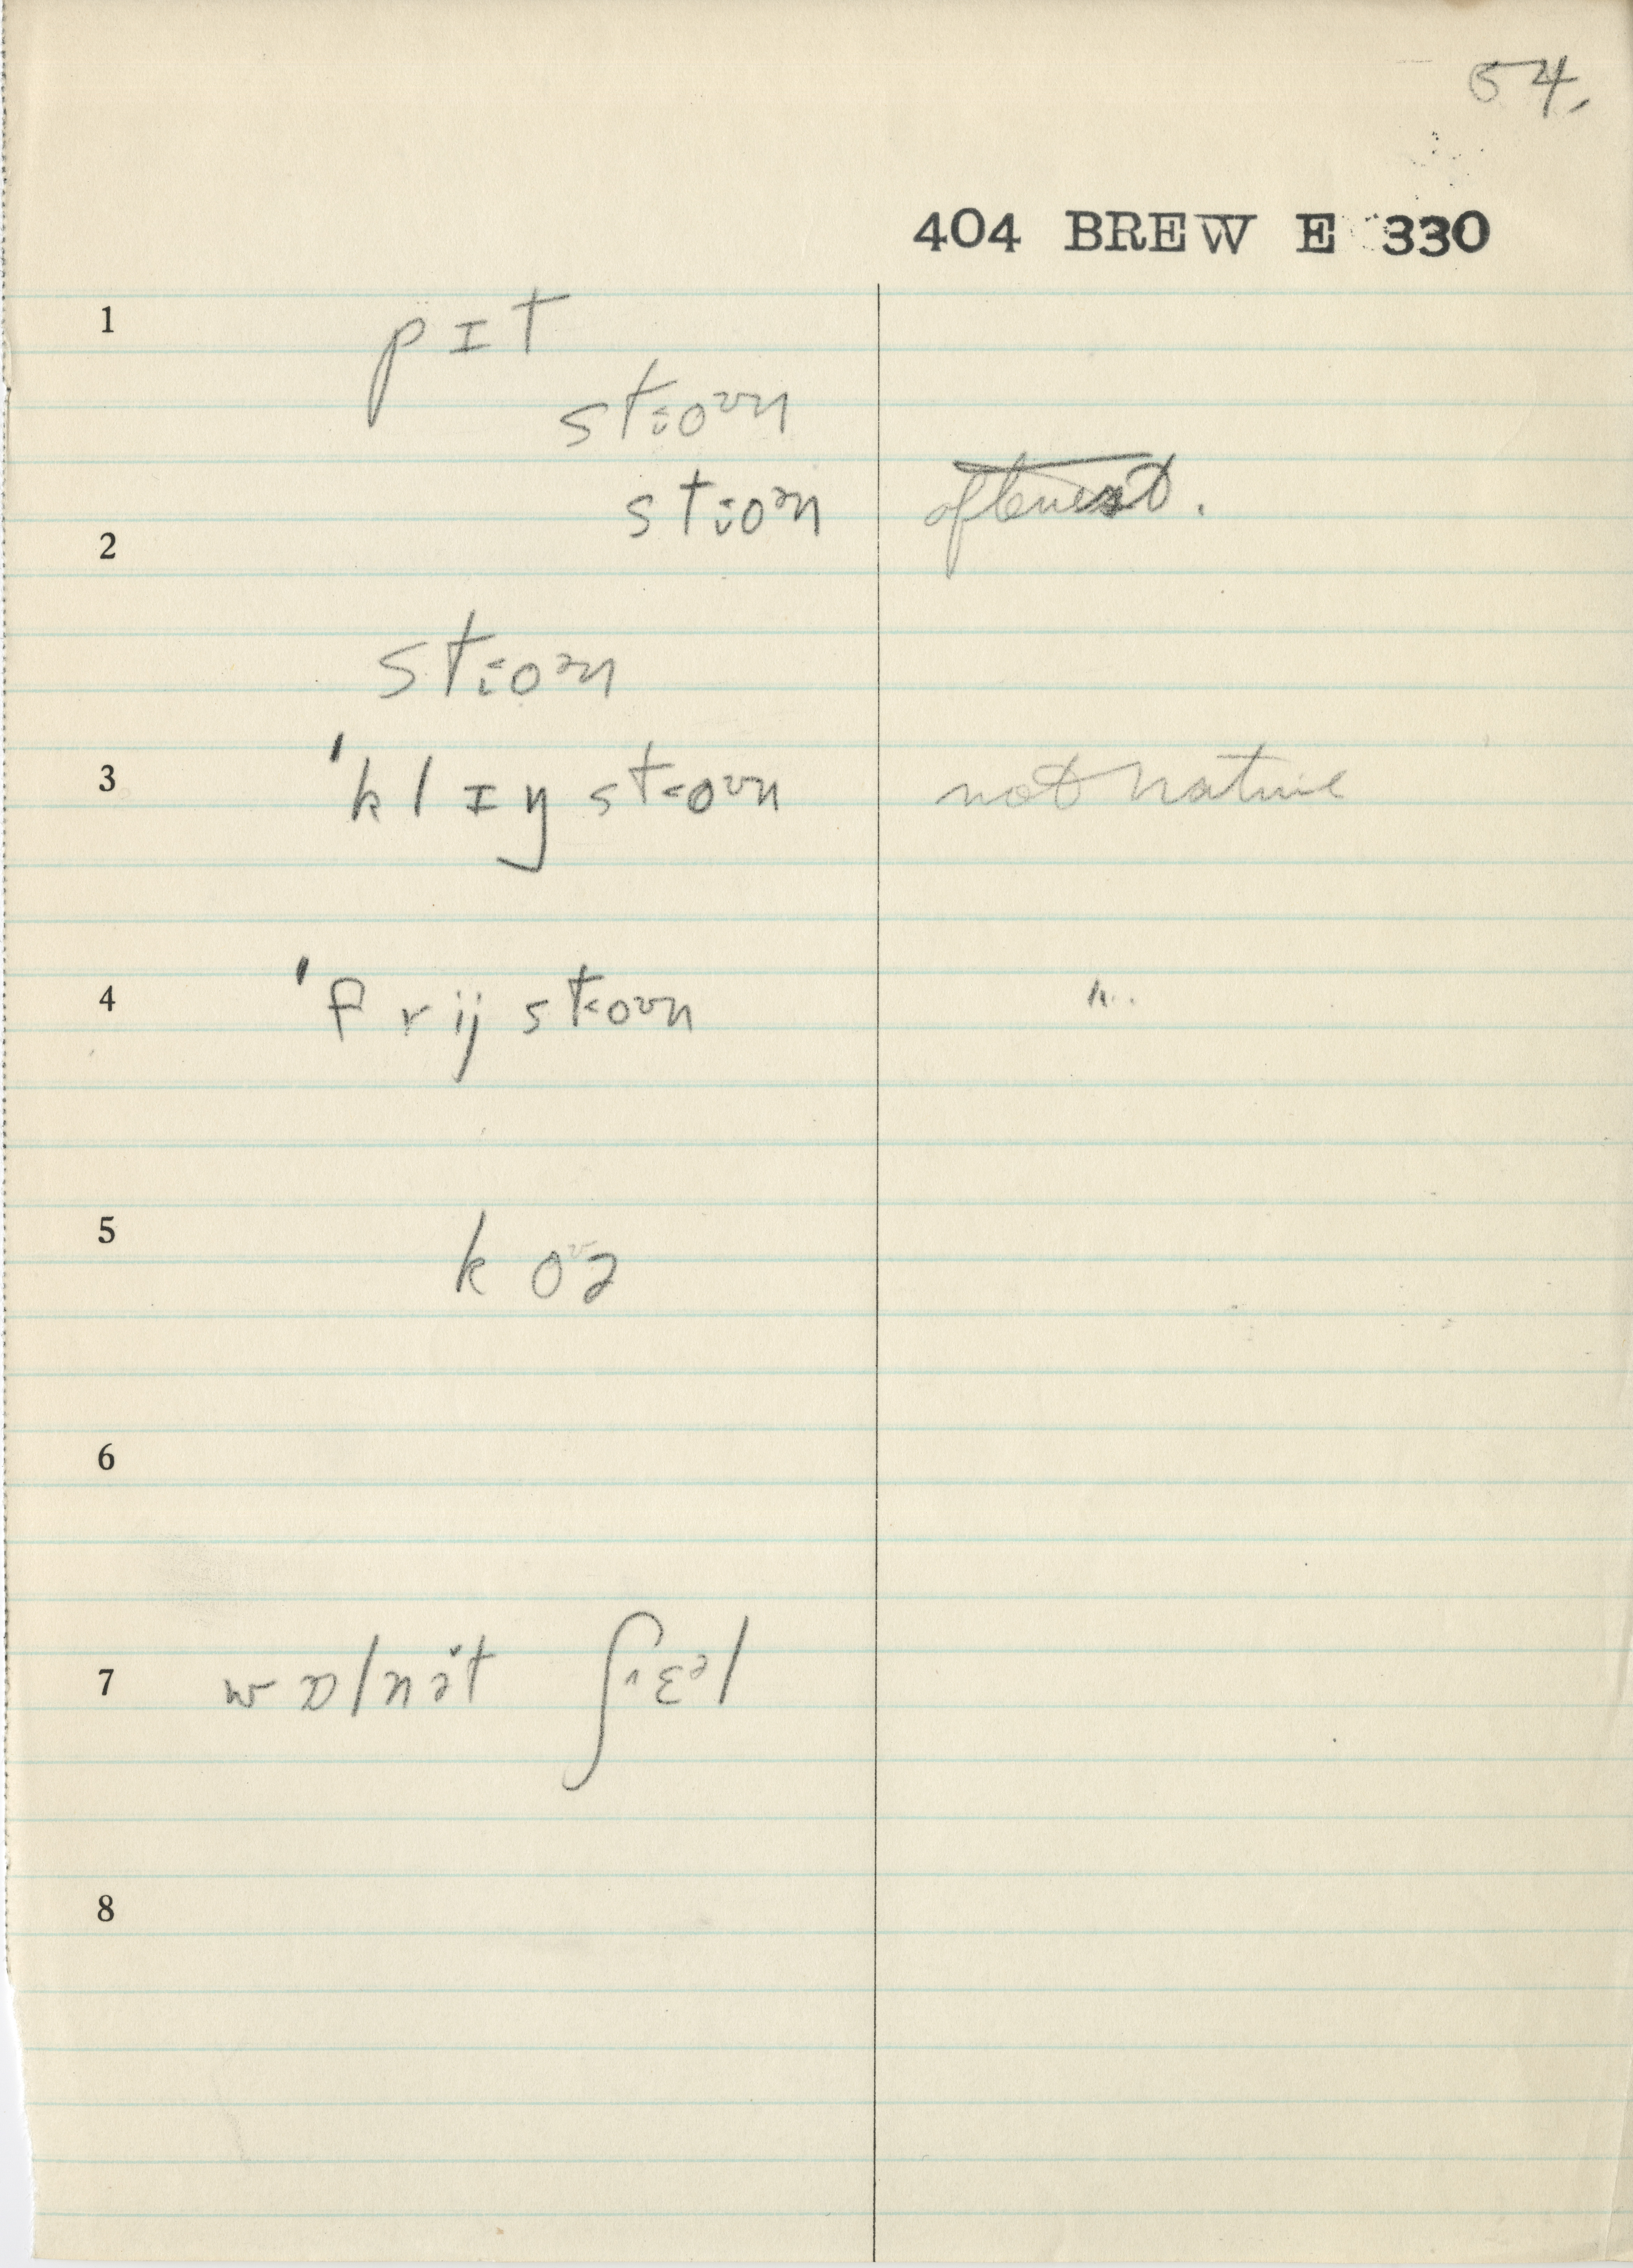 54.
404 BREW E 330
1 pɪt
st˕oᶷn
st˕oᵊn oftenest.
2
st˕oᵊn
3 'klɪŋ st˕oᶷn not native
4 'frij st˕oᶷn "
5 koᶷə
6
7 wɒlnət ʃɛᵊl
8